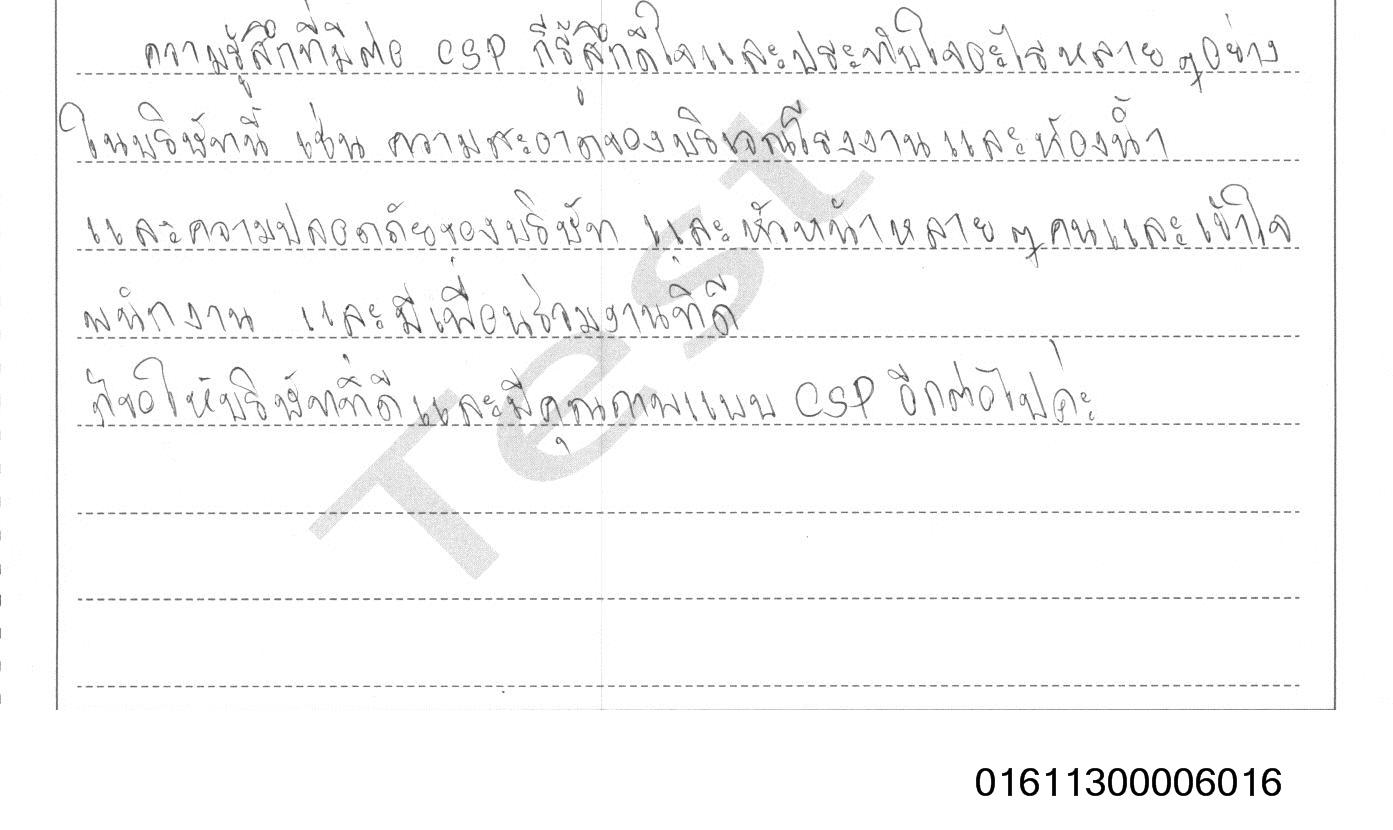 ความรู้สึกที่มีต่อ CSP ก็รู้สึกดีใจและประทับใจอะไรหลายๆอย่าง
ในบริษัทนี้ เช่น ความสะอาดของบริเวณโรงงานและห้องน้ำ
และความปลอดภัยของบริษัท และหัวหน้าหลายๆคนและเข้าใจ
พนักงาน และมีเพื่อนร่วมงานที่ดี
ก็ขอให้บริษัทที่ดีและมีคุณภาพแบบ CSP อีกต่อไปค่ะ
Test
01611300006016